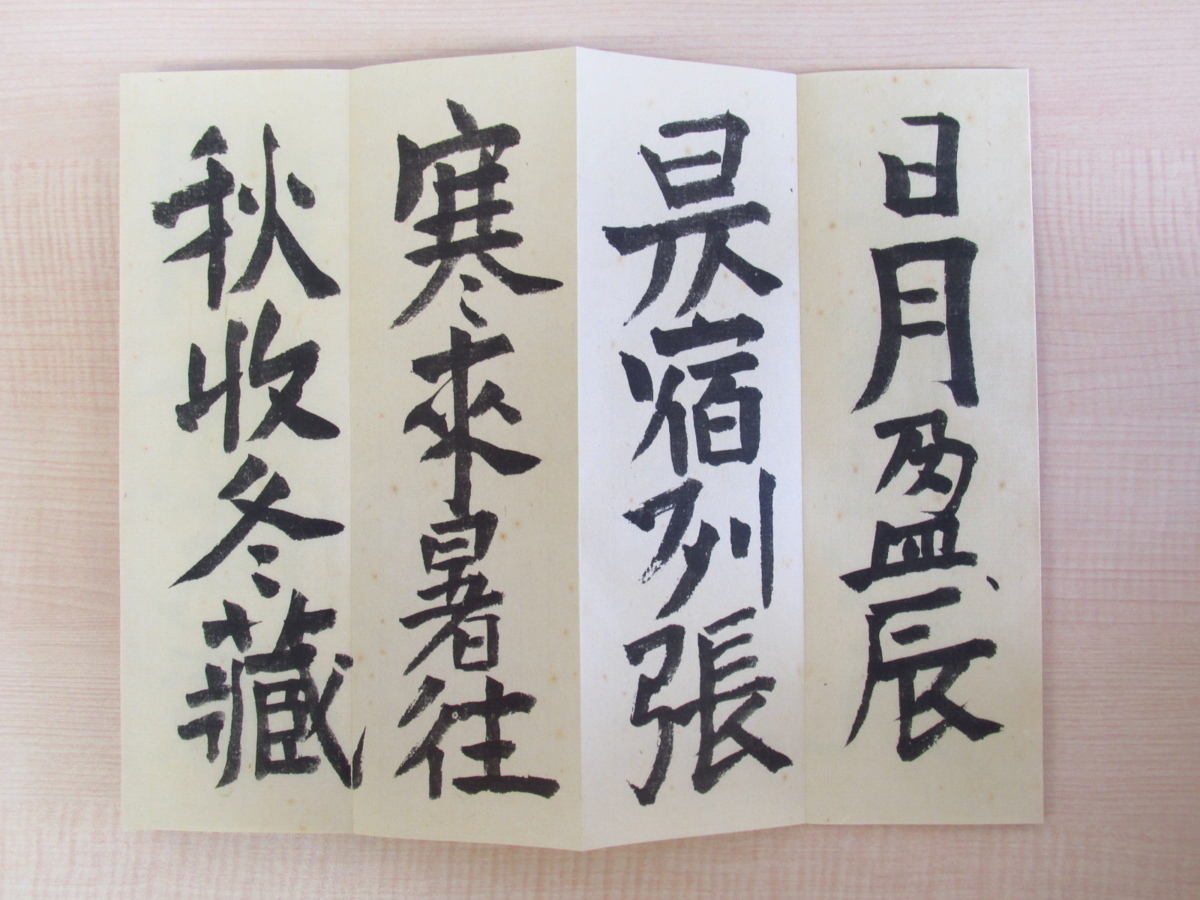 日月盈辰
昃宿列張
寒來暑往
秋收冬藏